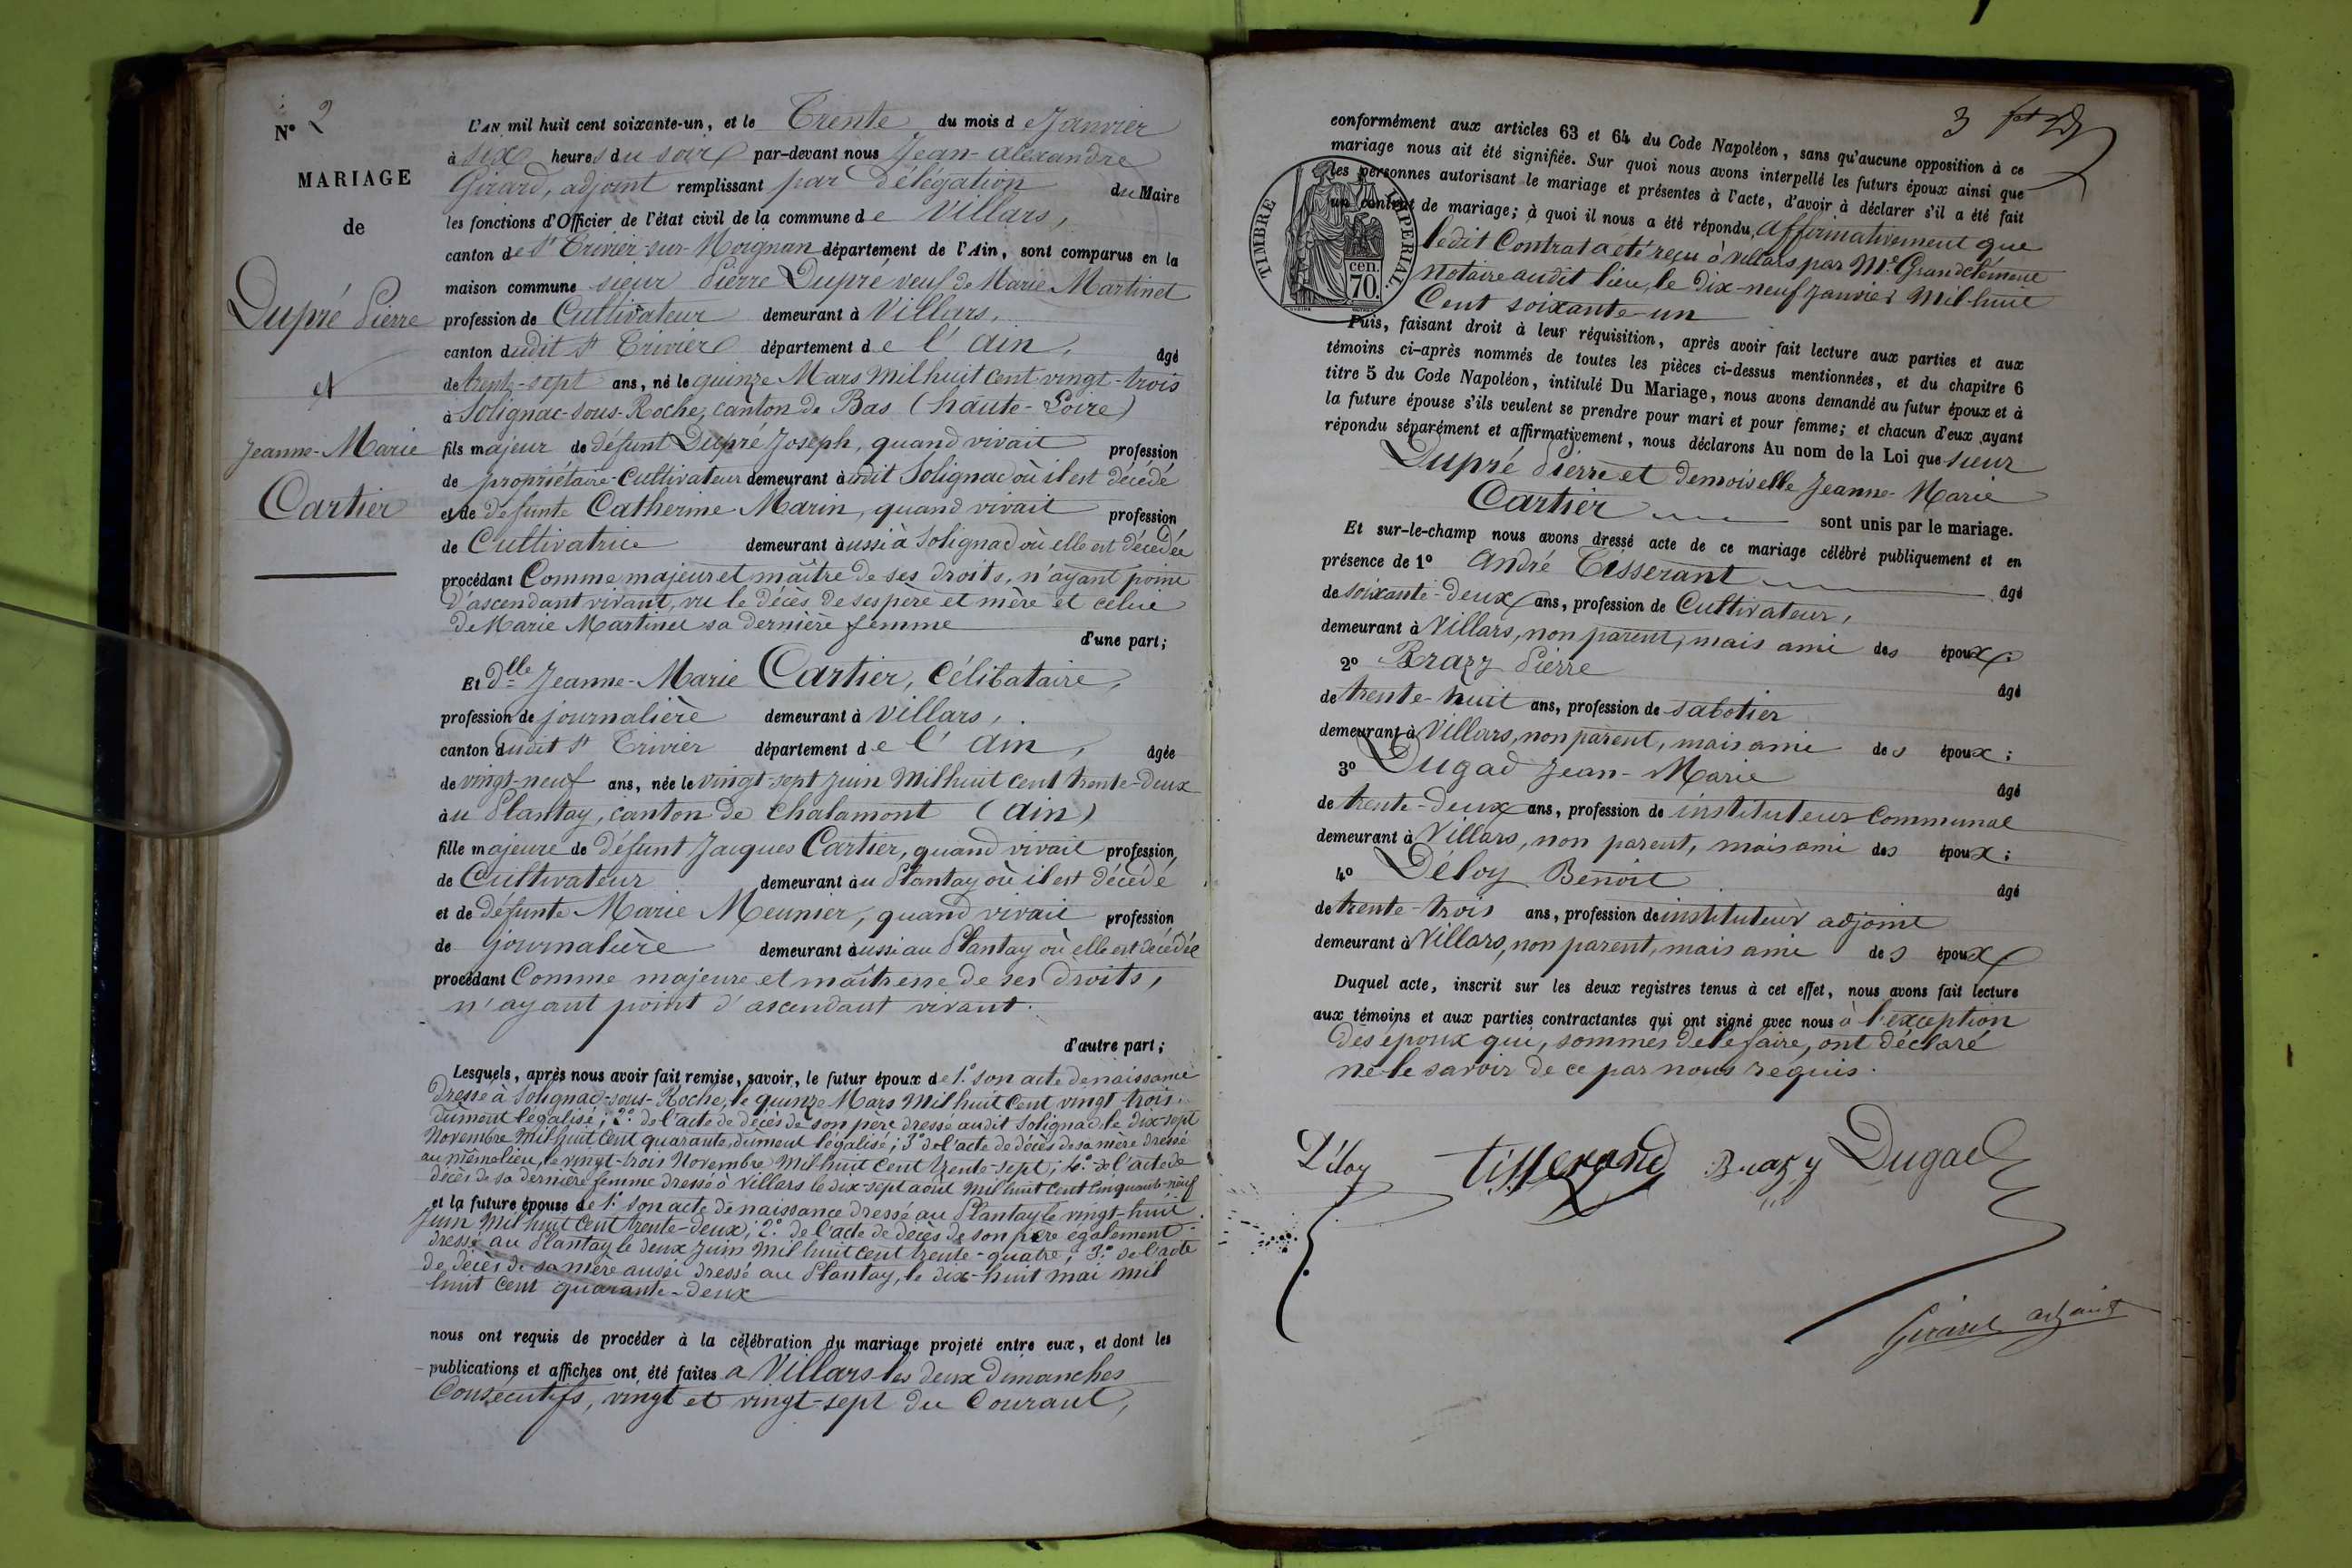 N° 2
MARIAGE
de
Dupré Pierre
et
Jeanne-Marie
Cartier
L'AN mil huit cent soixante-un, et le Trente du mois de Janvier
à six heures du soir par-devant nous Jean-Alexandre
Girard, adjoint remplissant par délégation du Maire
les fonctions d'Officier de l'état civil de la commune de Villars,
canton de St Trivier-sur-Moignan département de l'Ain, sont comparus en la
maison commune sieur Pierre Dupré veuf de Marie Martinet
profession de Cultivateur demeurant à Villars,
canton dudit St Trivier département de l'Ain, âgé
de trente-sept ans, né le quinze Mars Mil huit cent vingt-trois
à Solignac-sous-Roche, canton de Bas (haute-Loire)
fils majeur de défunt Dupré Joseph, quand vivait profession
de propriétaire-cultivateur demeurant audit Solignac où il est décédé
et de defunte Catherine Marin, quand vivait profession
de Cultivatrice demeurant aussi à Solignac où elle est décédée
procédant Comme majeur et maître de ses droits, n'ayant point
d'ascendant vivant, vu le décès de ses père et mère et celui
de Marie Martinet sa dernière femme d'une part;
Et dlle Jeanne-Marie Cartier, Célibataire,
profession de journalière demeurant à Villars,
canton dudit St Trivier département de l'Ain, âgée
de vingt-neuf ans, née le vingt-sept Juin Mil huit cent trente-deux
au Plantay, canton de Chalamont (Ain)
fille majeure de défunt Jacques Cartier, quand vivait profession
de Cultivateur demeurant au Plantay où il est décédé
et de défunte Marie Meunier, quand vivait profession
de journalière demeurant aussi au Plantay où elle est décédée
procédant Comme majeure et maîtresse de ses droits,
n'ayant point d'ascendant vivant.
d'autre part;
Lesquels, après nous avoir fait remise, savoir, le futur époux de 1.° son acte de naissance
dressé à Solignac-sous-Roche, le quinze Mars Mil huit Cent vingt-trois,
dûment légalisé; 2.° de l'acte de décès de son père dressé audit Solignac le dix-sept
Novembre Mil huit Cent quarante, dûment légalisé; 3.° de l'acte de décès de sa mère dressé
au même lieu, le vingt-trois Novembre Mil huit cent trente-sept; 4.° de l'acte de
décès de sa dernière femme dressé à Villars le dix-sept août Mil huit cent cinquante-neuf
et la future épouse de 1.° Son acte de naissance dressé au Plantay le vingt-huit
Juin Mil huit cent trente-deux; 2.° de l'acte de décès de son père également
dressé au Plantay le deux Juin Mil huit cent trente-quatre; 3.° de l'acte
de décès de sa mère aussi dressé au Plantay, le dix-huit mai mil
huit cent quarante-deux
nous ont requis de procéder à la célébration du mariage projeté entre eux, et dont les
publications et affiches ont été faites à Villars les deux dimanches
Consécutifs, vingt et vingt-sept du Courant,
3
conformément aux articles 63 et 64 du Code Napoléon, sans qu'aucune opposition à ce
mariage nous ait été signifiée. Sur quoi nous avons interpellé les futurs époux ainsi que
les personnes autorisant le mariage et présentes à l'acte, d'avoir à déclarer s'il a été fait
un contrat de mariage; à quoi il nous a été répondu, affirmativement que
ledit Contrat a été reçu à Villars par Me Grandclément
notaire audit lieu, le dix-neuf Janvier Mil huit
Cent soixante-un
TIMBRE IMPERIAL.
cen.
70.
Puis, faisant droit à leur réquisition, après avoir fait lecture aux parties et aux
témoins ci-après nommés de toutes les pièces ci-dessus mentionnées, et du chapitre 6
titre 5 du Code Napoléon, intitulé Du Mariage, nous avons demandé au futur époux et à
la future épouse s'ils veulent se prendre pour mari et pour femme; et chacun d'eux ayant
répondu séparément et affirmativement, nous déclarons Au nom de la Loi que sieur
Dupré Pierre et demoiselle Jeanne-Marie
Cartier sont unis par le mariage.
Et sur-le-champ nous avons dressé acte de ce mariage célébré publiquement et en
présence de 1° André Tisserant âgé
de soixante-deux ans, profession de Cultivateur,
demeurant à Villars, non parent, mais ami des époux;
2° Brazy Pierre âgé
de trente-huit ans, profession de sabotier
demeurant à Villars, non parent, mais ami des époux;
3° Dugad Jean-Marie âgé
de trente-deux ans, profession de instituteur Communal
demeurant à Villars, non parent, mais ami des époux;
4° Déloy Benoit âgé
de trente-trois ans, profession de instituteur adjoint
demeurant à Villars, non parent, mais ami des époux
Duquel acte, inscrit sur les deux registres tenus à cet effet, nous avons fait lecture
aux témoins et aux parties contractantes qui ont signé avec nous à l'exception
des époux qui, sommés de le faire, ont déclaré
ne le savoir de ce par nous requis.
Déloy Tisserand Brazy Dugad
Girard adjoint